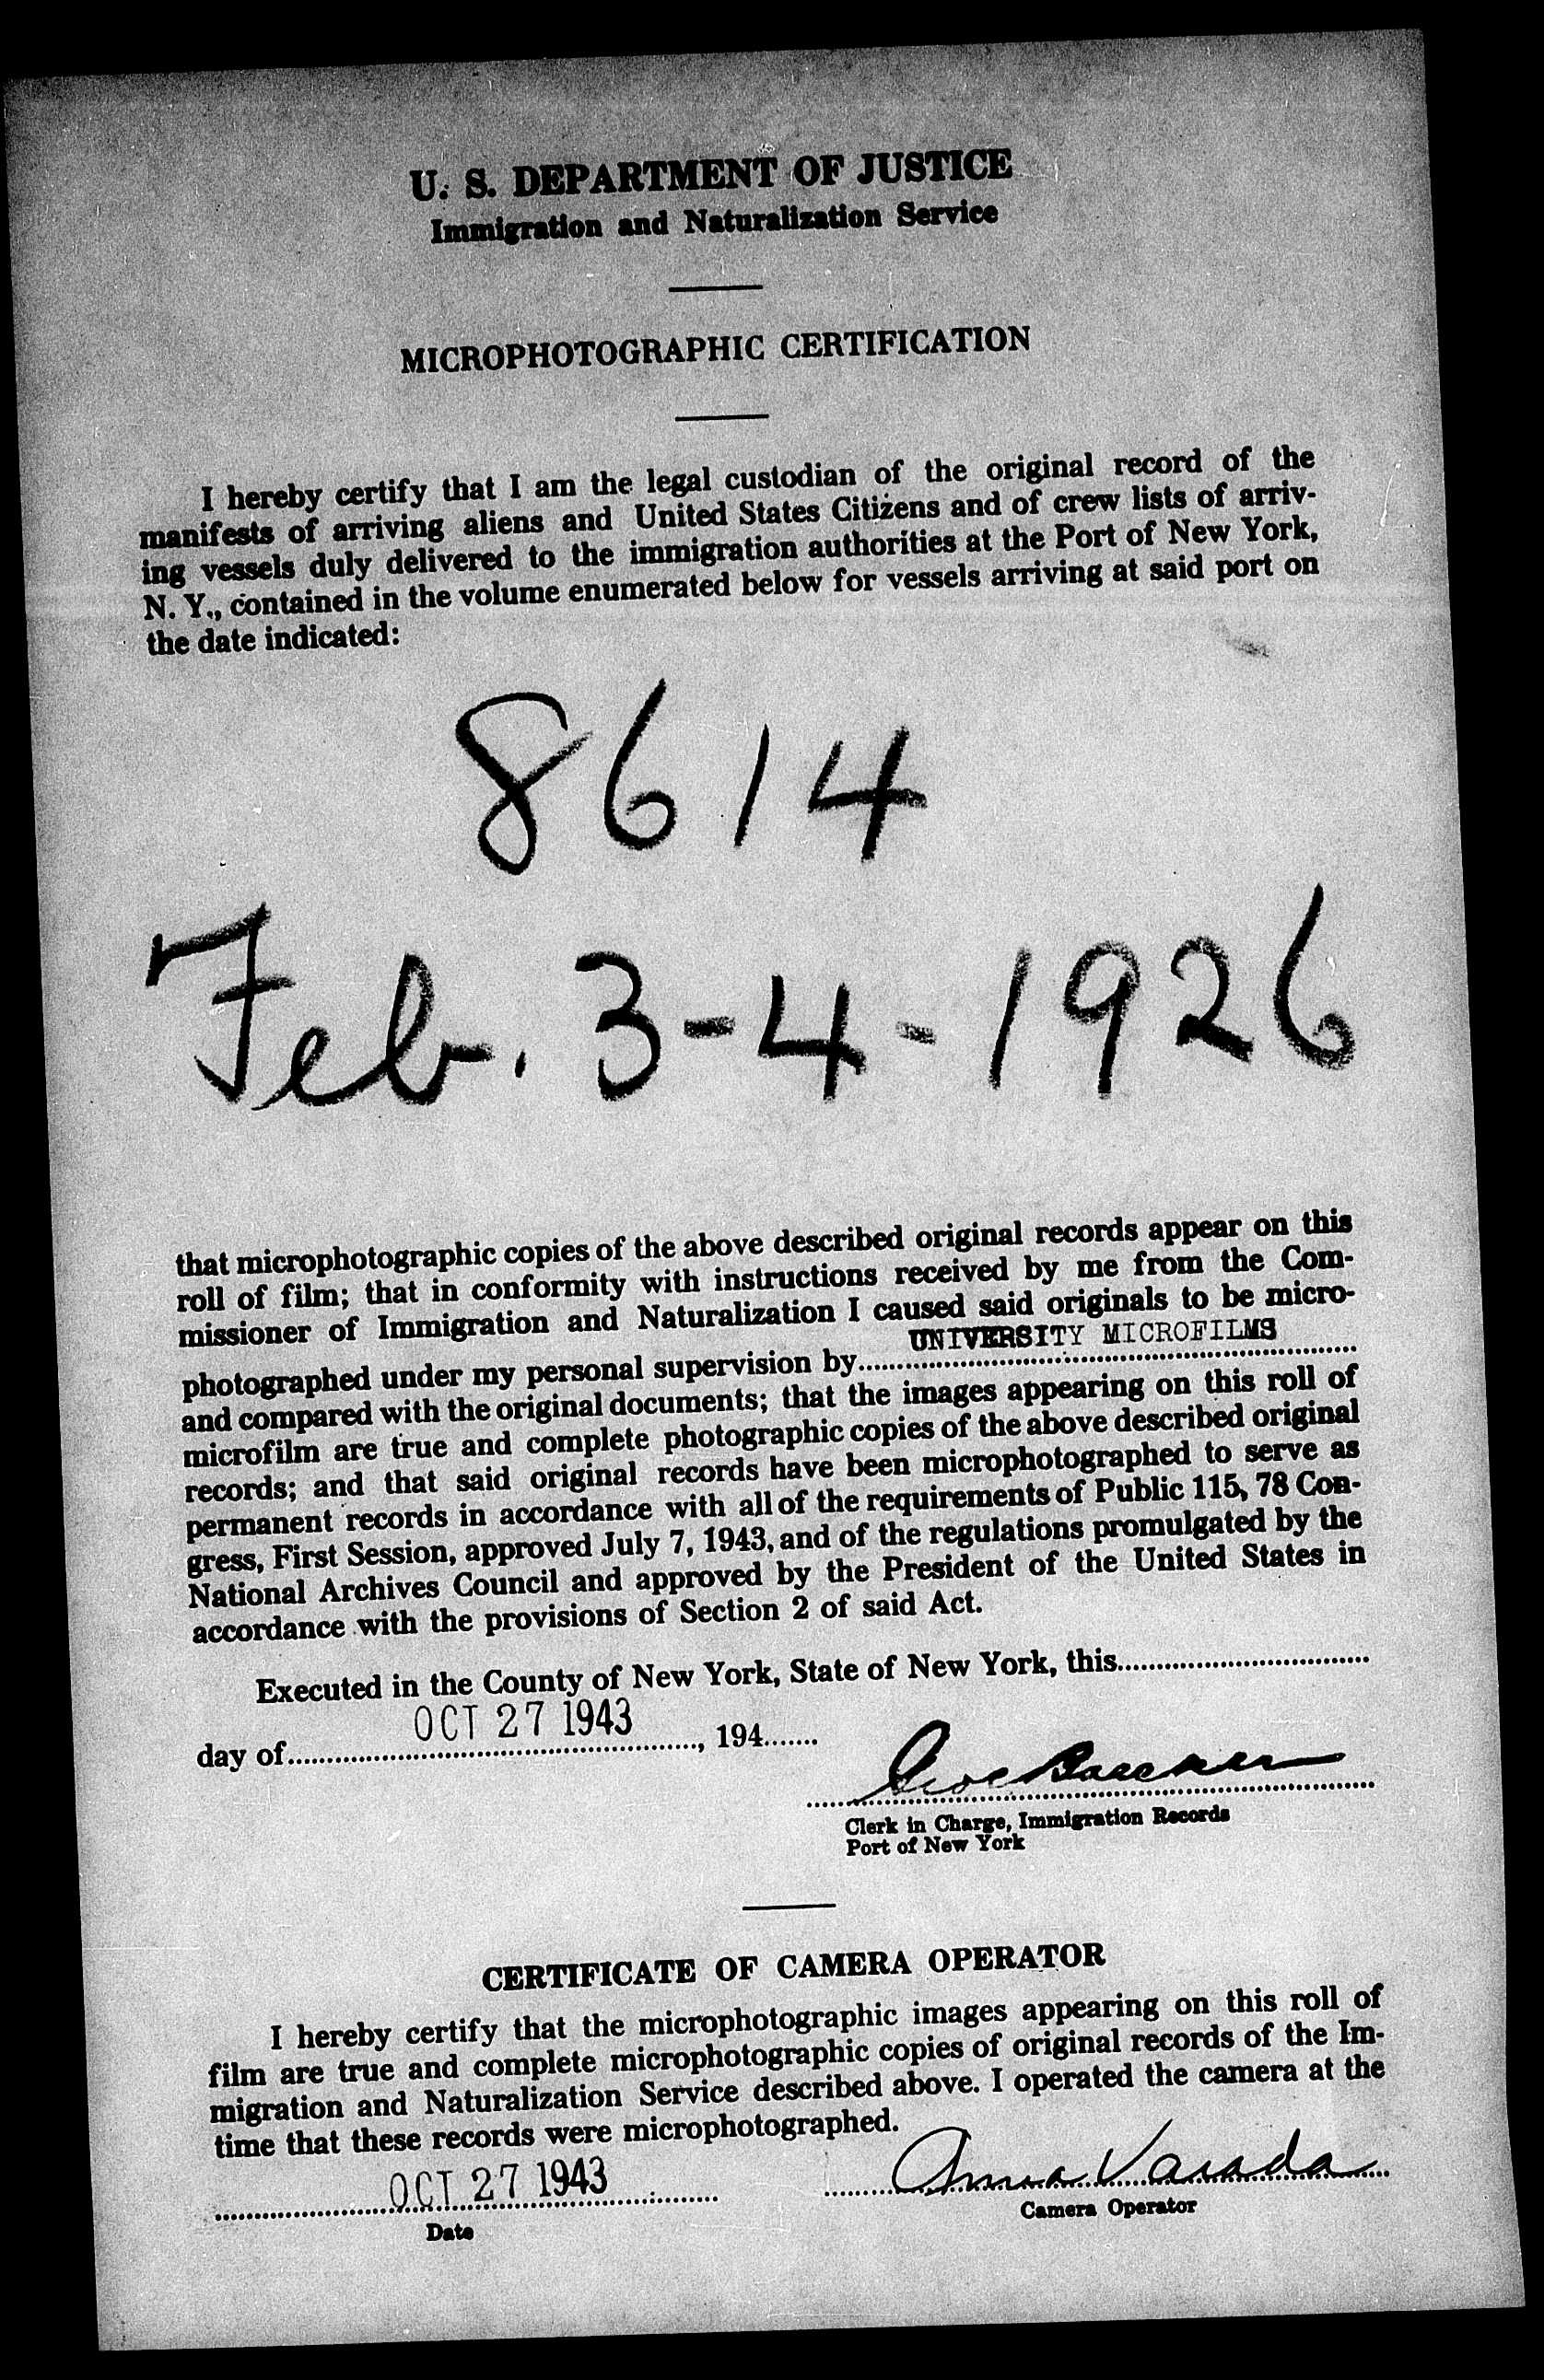 U. S. DEPARTMENT OF JUSTICE
Immigration and Naturalization Service
MICROPHOTOGRAPHIC CERTIFICATION
I hereby certify that I am the legal custodian of the original record of the
manifests of arriving aliens and United States Citizens and of crew lists of arriv-
ing vessels duly delivered to the immigration authorities at the Port of New York,
N. Y., contained in the volume enumerated below for vessels arriving at said port on
the date indicated:
8614
Feb. 3-4-1926
that microphotographic copies of the above described original records appear on this
roll of film; that in conformity with instructions received by me from the Com-
missioner of Immigration and Naturalization I caused said originals to be micro-
UNIVERSITY MICROFILMS
photographed under my personal supervision by
and compared with the original documents; that the images appearing on this roll of
microfilm are true and complete photographic copies of the above described original
records; and that said original records have been microphotographed to serve as
permanent records in accordance with all of the requirements of Public 115, 78 Con-
gress, First Session, approved July 7, 1943, and of the regulations promulgated by the
National Archives Council and approved by the President of the United States in
accordance with the provisions of Section 2 of said Act.
Executed in the County of New York, State of New York, this
OCT 27 1943
day of , 194
Clerk in Charge, Immigration Records
Port of New York
CERTIFICATE OF CAMERA OPERATOR
I hereby certify that the microphotographic images appearing on this roll of
film are true and complete microphotographic copies of original records of the Im-
migration and Naturalization Service described above. I operated the camera at the
time that these records were microphotographed.
OCT 27 1943 Anna Varada
Date Camera Operator